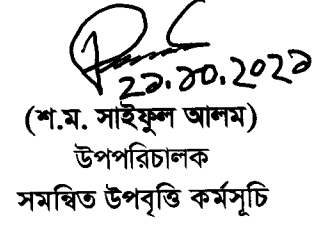 ২১.১০.২০২১
(শ.ম. সাইফুল আলম)
উপপরিচালক
সমন্বিত উপবৃত্তি কর্মসূচি